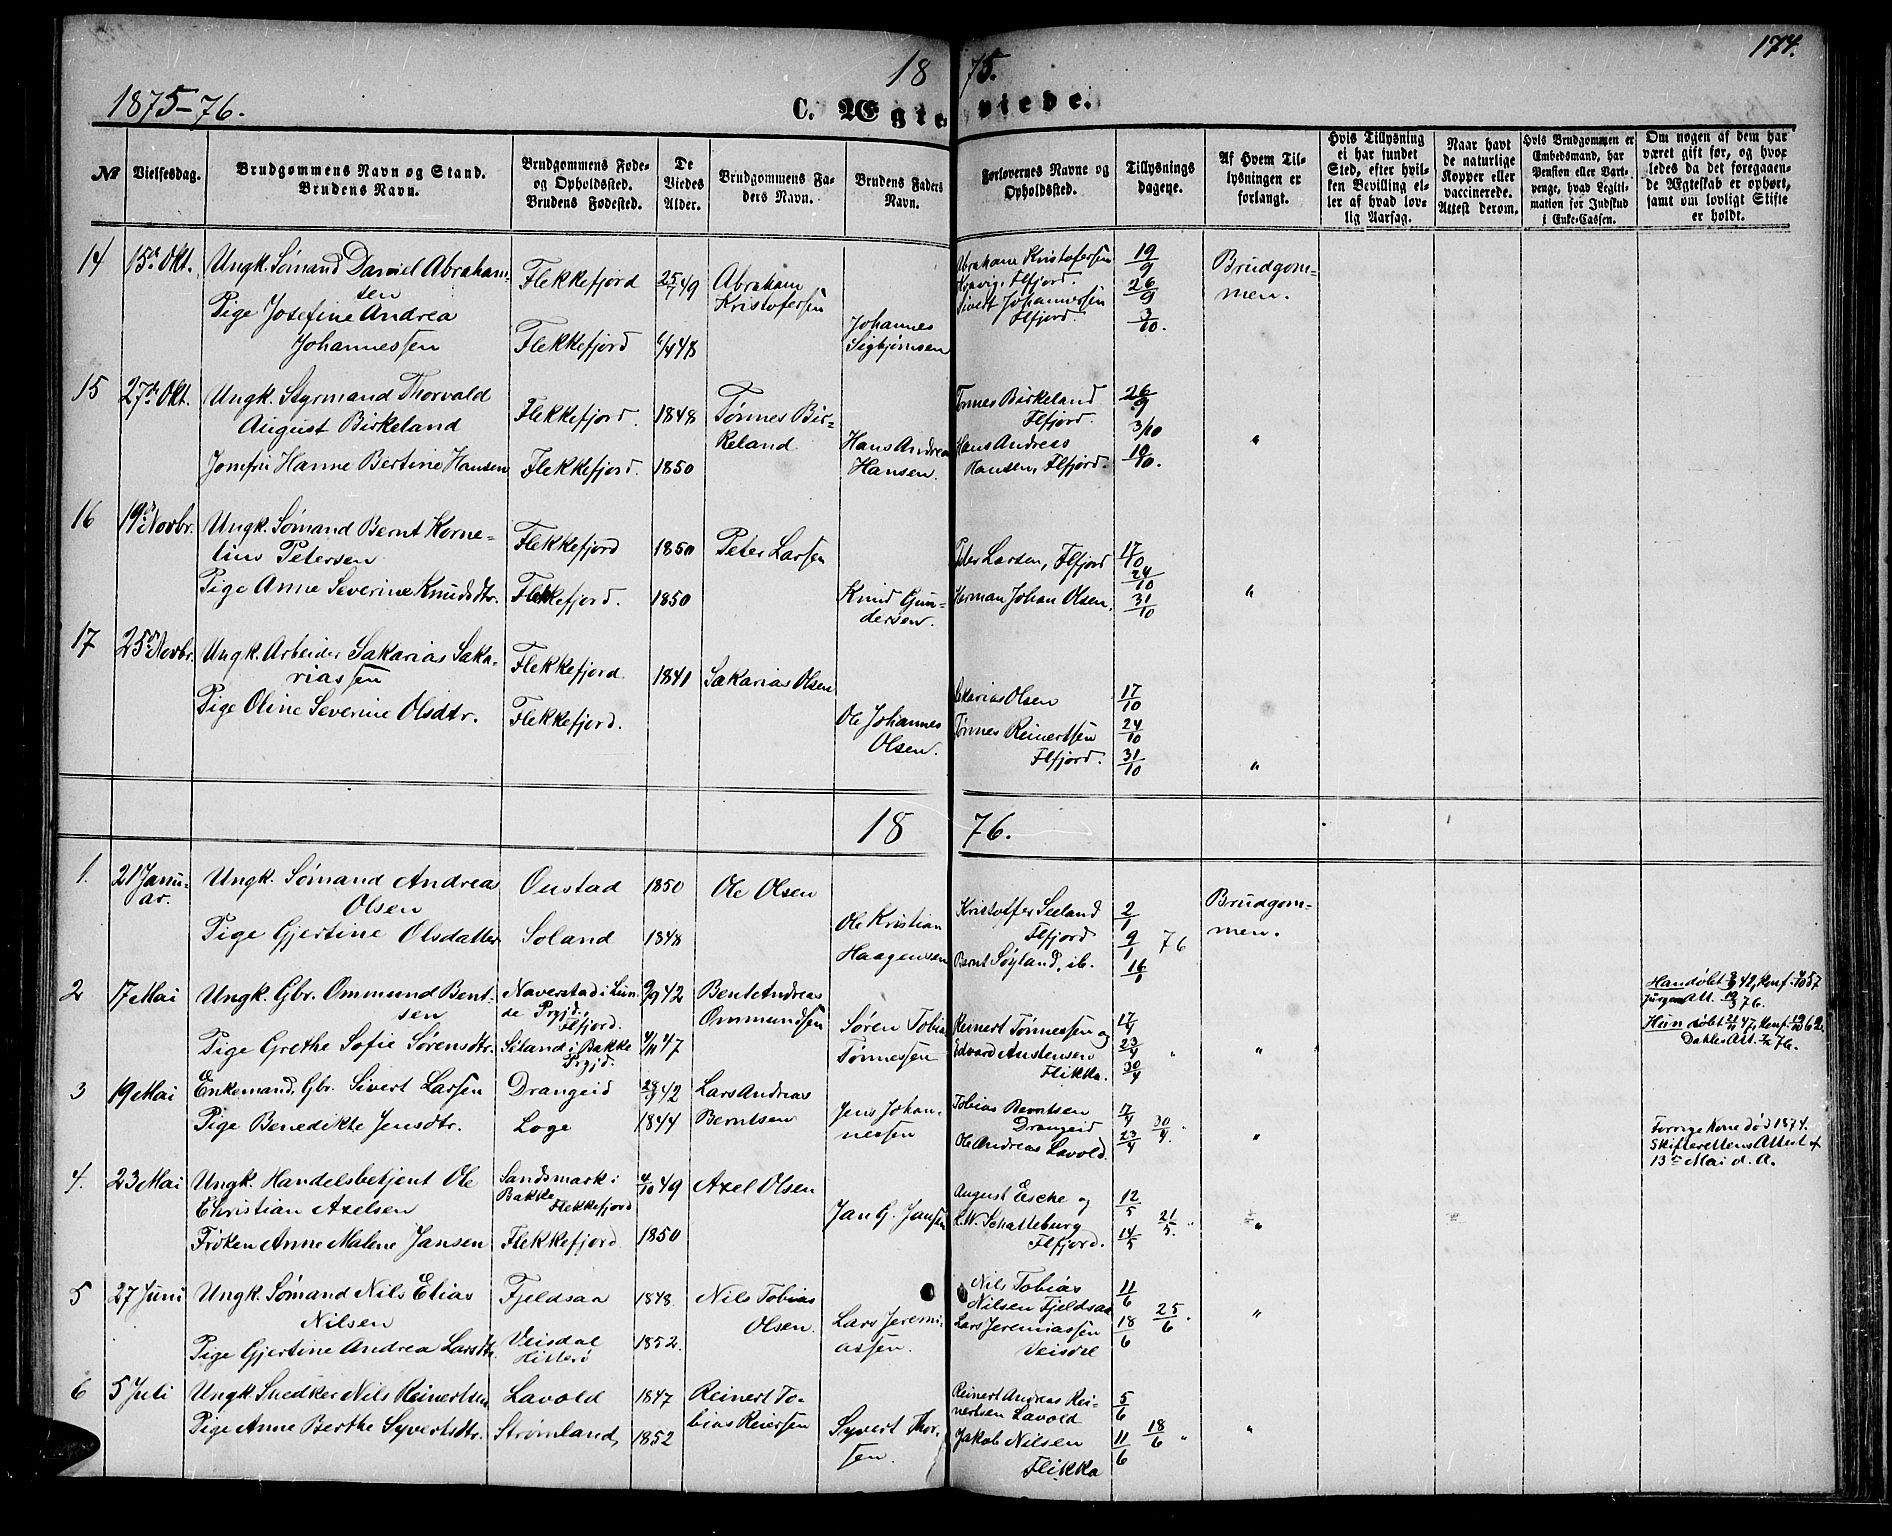 1875-76.
18 75.
174.
C. Ægteviede.
№
Vielsesdag.
Brudgommens Navn og Stand.
Brudens Navn.
Brudgommens Føde-
og Opholdssted.
Brudens Fødested.
De
Viedes
Alder.
Brudgommens Fa-
ders Navn.
Brudens Faders
Navn.
Forlovernes Navne og
Opholdssted.
Tillysnings
dagene.
Af Hvem Til-
lysningen er
forlangt.
Hvis Tillysning
ei har fundet
Sted, efter hvil-
ken Bevilling el-
ler af hvad lov-
lig Aarsag.
Naar havt
de naturlige
Kopper eller
vaccinerede.
Attest derom.
Hvis Brudgommen er
Embedsmand, har
Pension eller Vart-
penge, hvad Legiti-
mation for Indskud
i Enke-Cassen.
Om nogen af dem har
været gift før, og hvor-
ledes da det foregaaen-
de Ægteskab er ophørt,
samt om lovligt Skifte
er holdt.
14
15de Okt.
Ungk. Sømand Daniel Abraham-
sen
Pige Josefine Andrea
Johannessen
Flekkefjord
Flekkefjord
25/7 49
6/4 48
Abraham
Kristofersen
Johannes
Sigbjørnsen
Abraham Kristofersen
Flfjord.
Sivert Johannessen
Flfjord.
19/9
26/9
3/10.
Brudgom-
men.
15
27de Okt.
Ungk. Styrmand Thorvald
August Birkeland
Jomfru Hanne Bertine Hansen
Flekkefjord.
Flekkefjord.
1848
1850
Tønnes Bir-
keland
Hans Andreas
Hansen.
Tønnes Birkeland
Flfjord.
Hans Andreas
Hansen, Flfjord.
26/9
3/10
10/10.
"
16
19de Novbr.
Ungk. Sømand Bernt Korne-
lius Petersen
Pige Anne Severine Knudsdtr.
Flekkefjord
Flekkefjord.
1850
1850
Peter Larsen
Knud Gun-
dersen.
Peter Larsen, Flfjord
Herman Johan Olsen,
17/10
24/10
31/10
"
17
25de Novbr.
Ungk. Arbeider Sakarias Saka-
riassen
Pige Oline Severine Olsdtr.
Flekkefjord
Flekkefjord.
1841
Sakarias Olsen
Ole Johannes
Olsen.
Sakarias Olsen
Tønnes Reinertsen
Flfjord.
17/10
24/10
31/10
"
18 76.
1.
21 Janu-
ar.
Ungk. Sømand Andreas
Olsen
Pige Gjertine Olsdatter
Oustad
Soland
1850
1848
Ole Olsen
Ole Kristian
Haagensen
Kristoffer Seeland
Flfjord
Bernt Søyland, ib.
2/1
9/1 76
16/1
Brudgom-
men.
2
17 Mai
Ungk. Gbr. Ommund Bent-
sen
Pige Grethe Sofie Sørensdtr.
Naverstad i Lun-
de Prgjd.,
Flfjord.
Siland i Bakke
Prgjd.
9/9 42
4/11 47
Bent Andreas
Ommundsen
Søren Tobias
Tønnessen
Reinert Tønnessen og
Edvard Austensen
Flikka.
17/4
23/4
30/4
"
Han døbt
Att. 76.
Hun døbt
Dahles Att. 76.
3
19 Mai
Enkemand, Gbr. Sivert Larsen
Pige Benedikte Jensdtr.
Drangeid
Loge
28/9 42
1844
Lars Andreas
Berntsen
Jens Johan-
nessen
Tobias Berntsen
Drangeid
Ole Andreas Lavold.
17/4
23/4
30/4.
"
Forrige Kone død 1874.
Skifterettens Attest af
13de Mai d. A.
4.
23 Mai
Ungk. Handelsbetjent Ole
Christian Axelsen
Frøken Anne Malene Jansen
Sandsmark i
Bakke
Flekkefjord
Flekkefjord
4/10 49
1850
Axel Olsen
Jan G. Jansen
August Esche og
L.W. Schatteburg
Flfjord.
12/5
14/5
21/5.
"
5
27 Juni
Ungk. Sømand Nils Elias
Nilsen
Pige Gjertine Andrea Larsdtr.
Fjeldsaa
Veisdal
Hitterø
1848.
1852.
Nils Tobias
Olsen.
Lars Jeremi-
assen.
Nils Tobias
Nilsen Fjeldsaa
Lars Jeremiassen
Veisdal
11/6
18/6
25/6.
"
6
5 Juli
Ungk. Snedker Nils Reinertsen
Pige Anne Berthe Syvertsdtr.
Lavold
Strømland,
1847
1852
Reinert To-
bias Reiersen
Syvert Thor-
sen.
Reinert Andreas Rei-
nertsen Lavold
Jakob Nilsen
Flikka
5/6
11/6
18/6
"